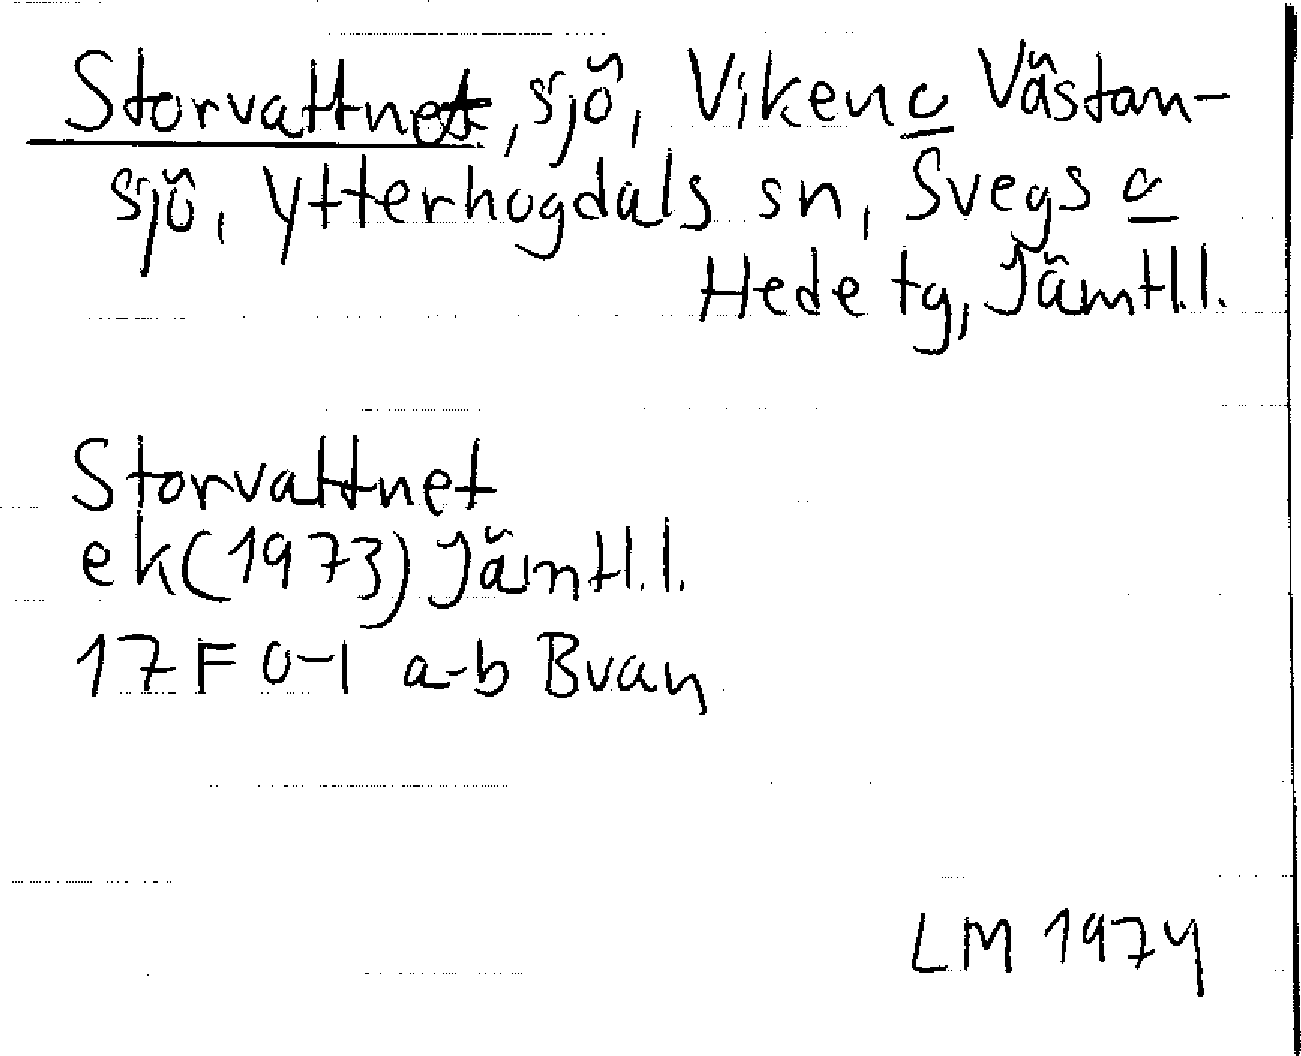 Storvattnet, sjö, Viken o Västan-
sjö, Ytterhogdals sn, Svegs o
Hede tg, Jämtl.l.
Storvattnet
ek(1973) Jämtl.l.
17F 0-1 a-b Bvan
LM 1974